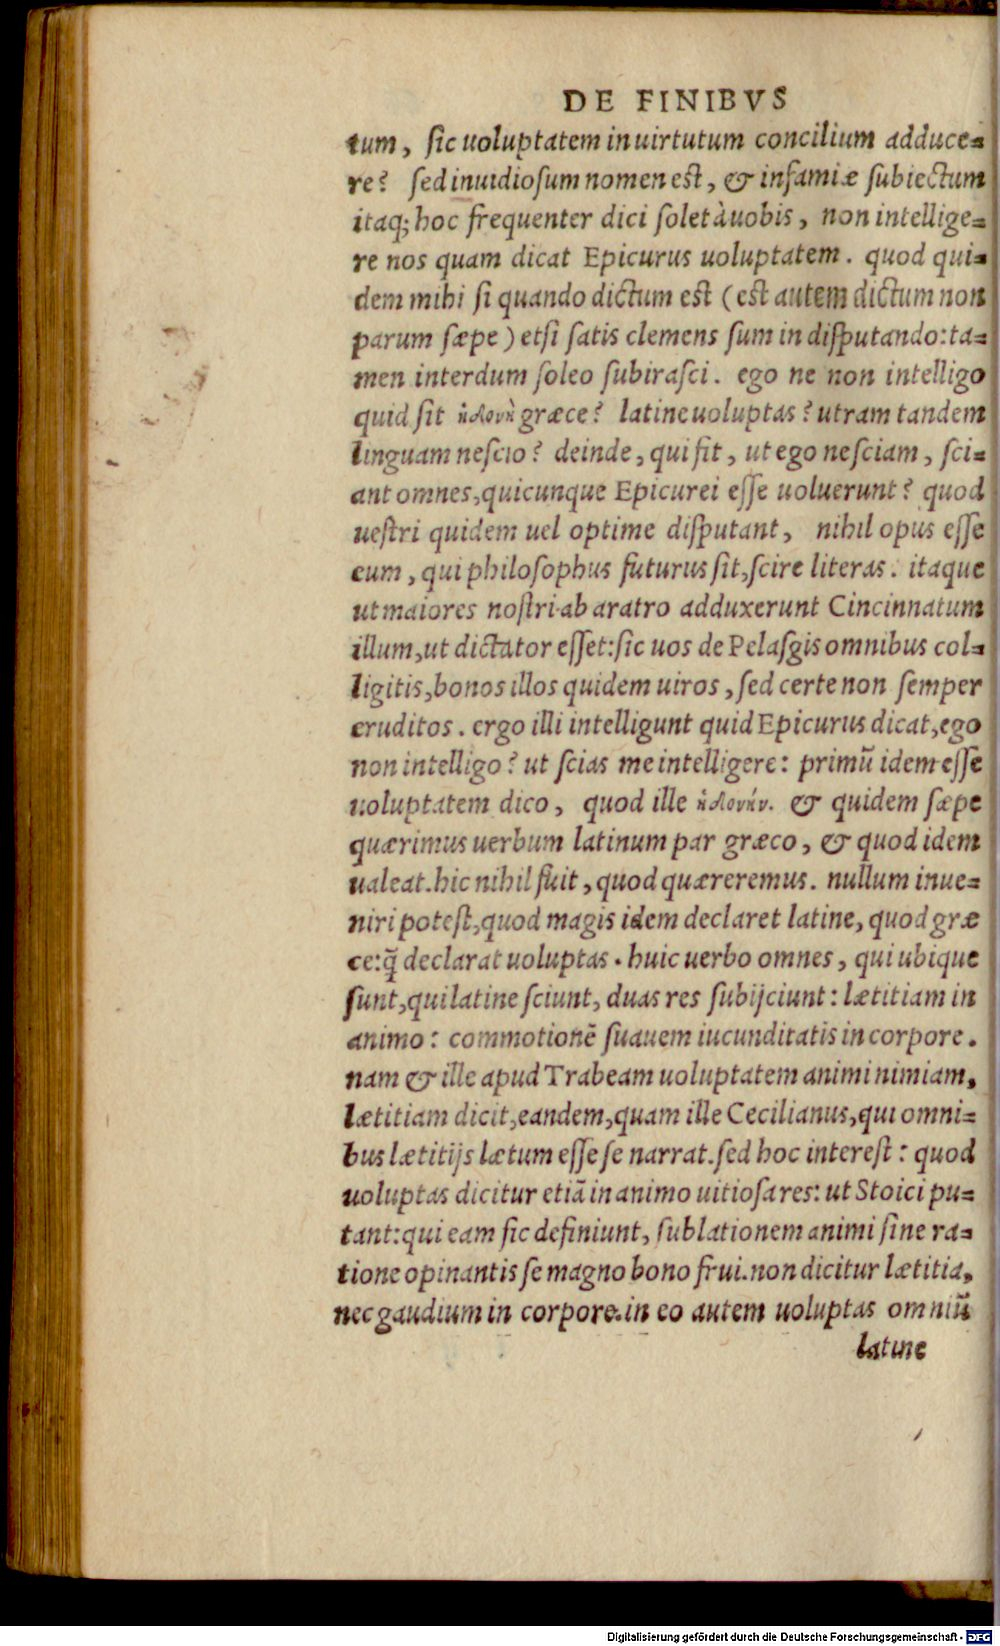 DE FINIBVS
tum, ſic uoluptatem in uirtutum concilium adduce=
re? ſed inuidioſum nomen eſt, & infamiæ ſubiectum
itaq; hoc frequenter dici ſolet à uobis, non intellige=
re nos quam dicat Epicurus uoluptatem. quod qui=
dem mihi ſi quando dictum eſt (eſt autem dictum non
parum ſæpe) etſi ſatis clemens ſum in diſputando: ta=
men interdum ſoleo ſubiraſci. ego ne non intelligo
quid ſit ἡδονὴ græce? latine uoluptas? utram tandem
linguam neſcio? deinde, qui fit, ut ego neſciam, ſci=
ant omnes, quicunque Epicurei eſſe uoluerunt? quod
ueſtri quidem uel optime diſputant, nihil opus eſſe
eum, qui philoſophus futurus ſit, ſcire literas. itaque
ut maiores noſtri ab aratro adduxerunt Cincinnatum
illum, ut dictator eſſet: ſic uos de Pelaſgis omnibus col=
ligitis, bonos illos quidem uiros, ſed certe non ſemper
eruditos. ergo illi intelligunt quid Epicurus dicat, ego
non intelligo? ut ſcias me intelligere: primū idem eſſe
uoluptatem dico, quod ille ἡδονήν. & quidem ſæpe
quærimus uerbum latinum par græco, & quod idem
ualeat. hic nihil fuit, quod quæreremus. nullum inue=
niri poteſt, quod magis idem declaret latine, quod græ
ce: q̃ declarat uoluptas. huic uerbo omnes, qui ubique
ſunt, qui latine ſciunt, duas res ſubijciunt: lætitiam in
animo: commotionē ſuauem iucunditatis in corpore.
nam & ille apud Trabeam uoluptatem animi nimiam,
lætitiam dicit, eandem, quam ille Cecilianus, qui omni=
bus lætitijs lætum eſſe ſe narrat. ſed hoc intereſt: quod
uoluptas dicitur etiā in animo uitioſa res: ut Stoici pu=
tant: qui eam ſic definiunt, ſublationem animi ſine ra=
tione opinantis ſe magno bono frui. non dicitur lætitia,
nec gaudium in corpore. in eo autem uoluptas omniū
latine
Digitalisierung gefördert durch die Deutsche Forschungsgemeinschaft - DFG